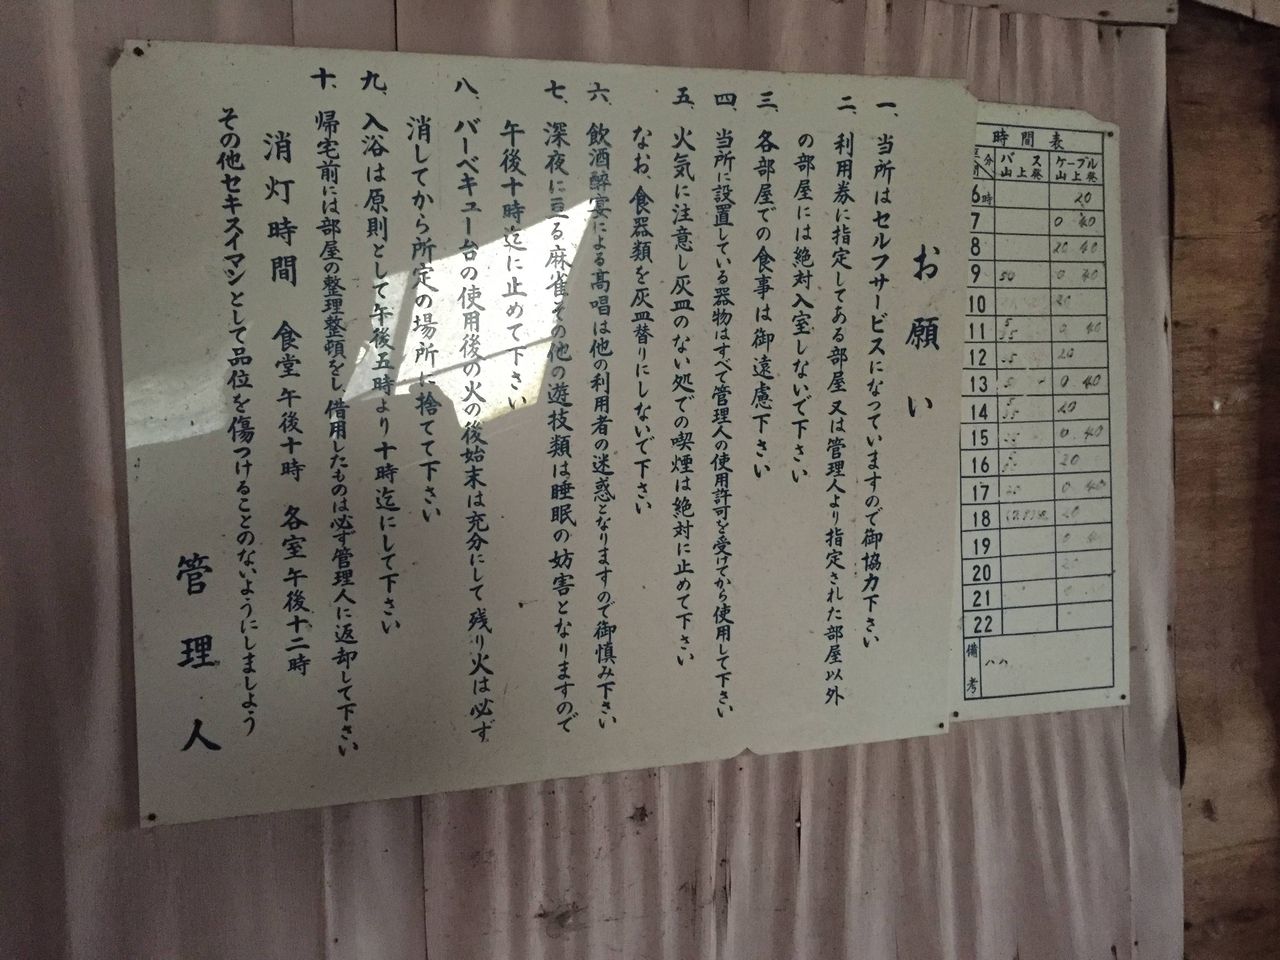 お願い
一、当所はセルフサービスになっていますので御協力下さい
二、利用券に指定してある部屋又は管理人より指定された部屋以外
の部屋には絶対入室しないで下さい
三、各部屋での食事は御遠慮下さい
四、当所に設置している器物はすべて管理人の使用許可を受けてから使用して下さい
五、火気に注意し灰皿のない処での喫煙は絶対に止めて下さい
なお、食器類を灰皿替りにしないで下さい
六、飲酒酔宴による高唱は他の利用者の迷惑となりますので御慎み下さい
七、深夜に亘る麻雀その他の遊技類は睡眠の妨害となりますので
午後十時迄に止めて下さい
八、バーベキュー台の使用後の火の後始末は充分にして残り火は必ず
消してから所定の場所に捨てて下さい
九、入浴は原則として午後五時より十時迄にして下さい
十、帰宅前には部屋の整理整頓をし、借用したものは必ず管理人に返却して下さい
消灯時間 食堂午後十時 各室午後十二時
その他セキスイマンとして品位を傷つけることのないようにしましよう
管理人
時間表
分 バス山上発 ケーブル山上発
6時 20
7 0 40
8 20 40
9 50 0 40
10 20
11 0 40
12 20
13 0 40
14 20
15 0 40
16 20
17 0 40
18 20
19
20
21
22
備考